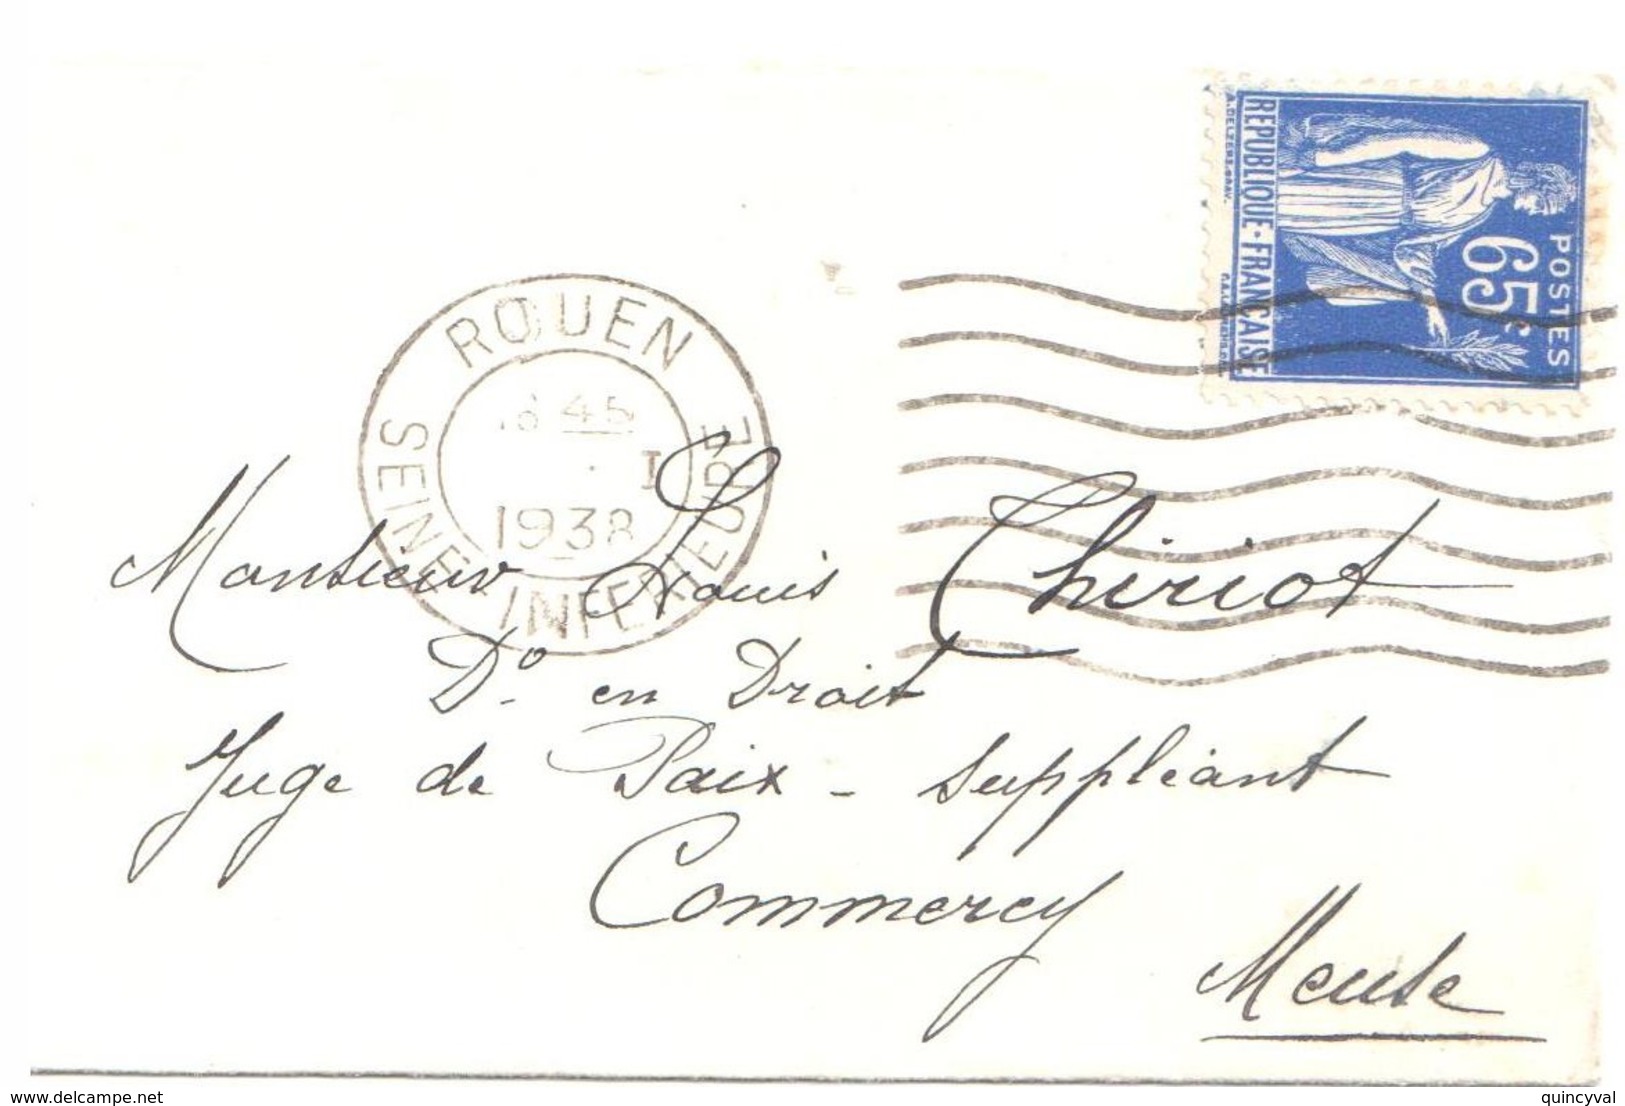 RÉPUBLIQUE·FRANÇAISE
POSTES
65c
ROUEN
18 45
I
1938
SEINE INFERIEURE
Monsieur Louis Thiriot
Dr en Droit
Juge de Paix - suppléant
Commercy
Meuse
www.delcampe.net
quincyval